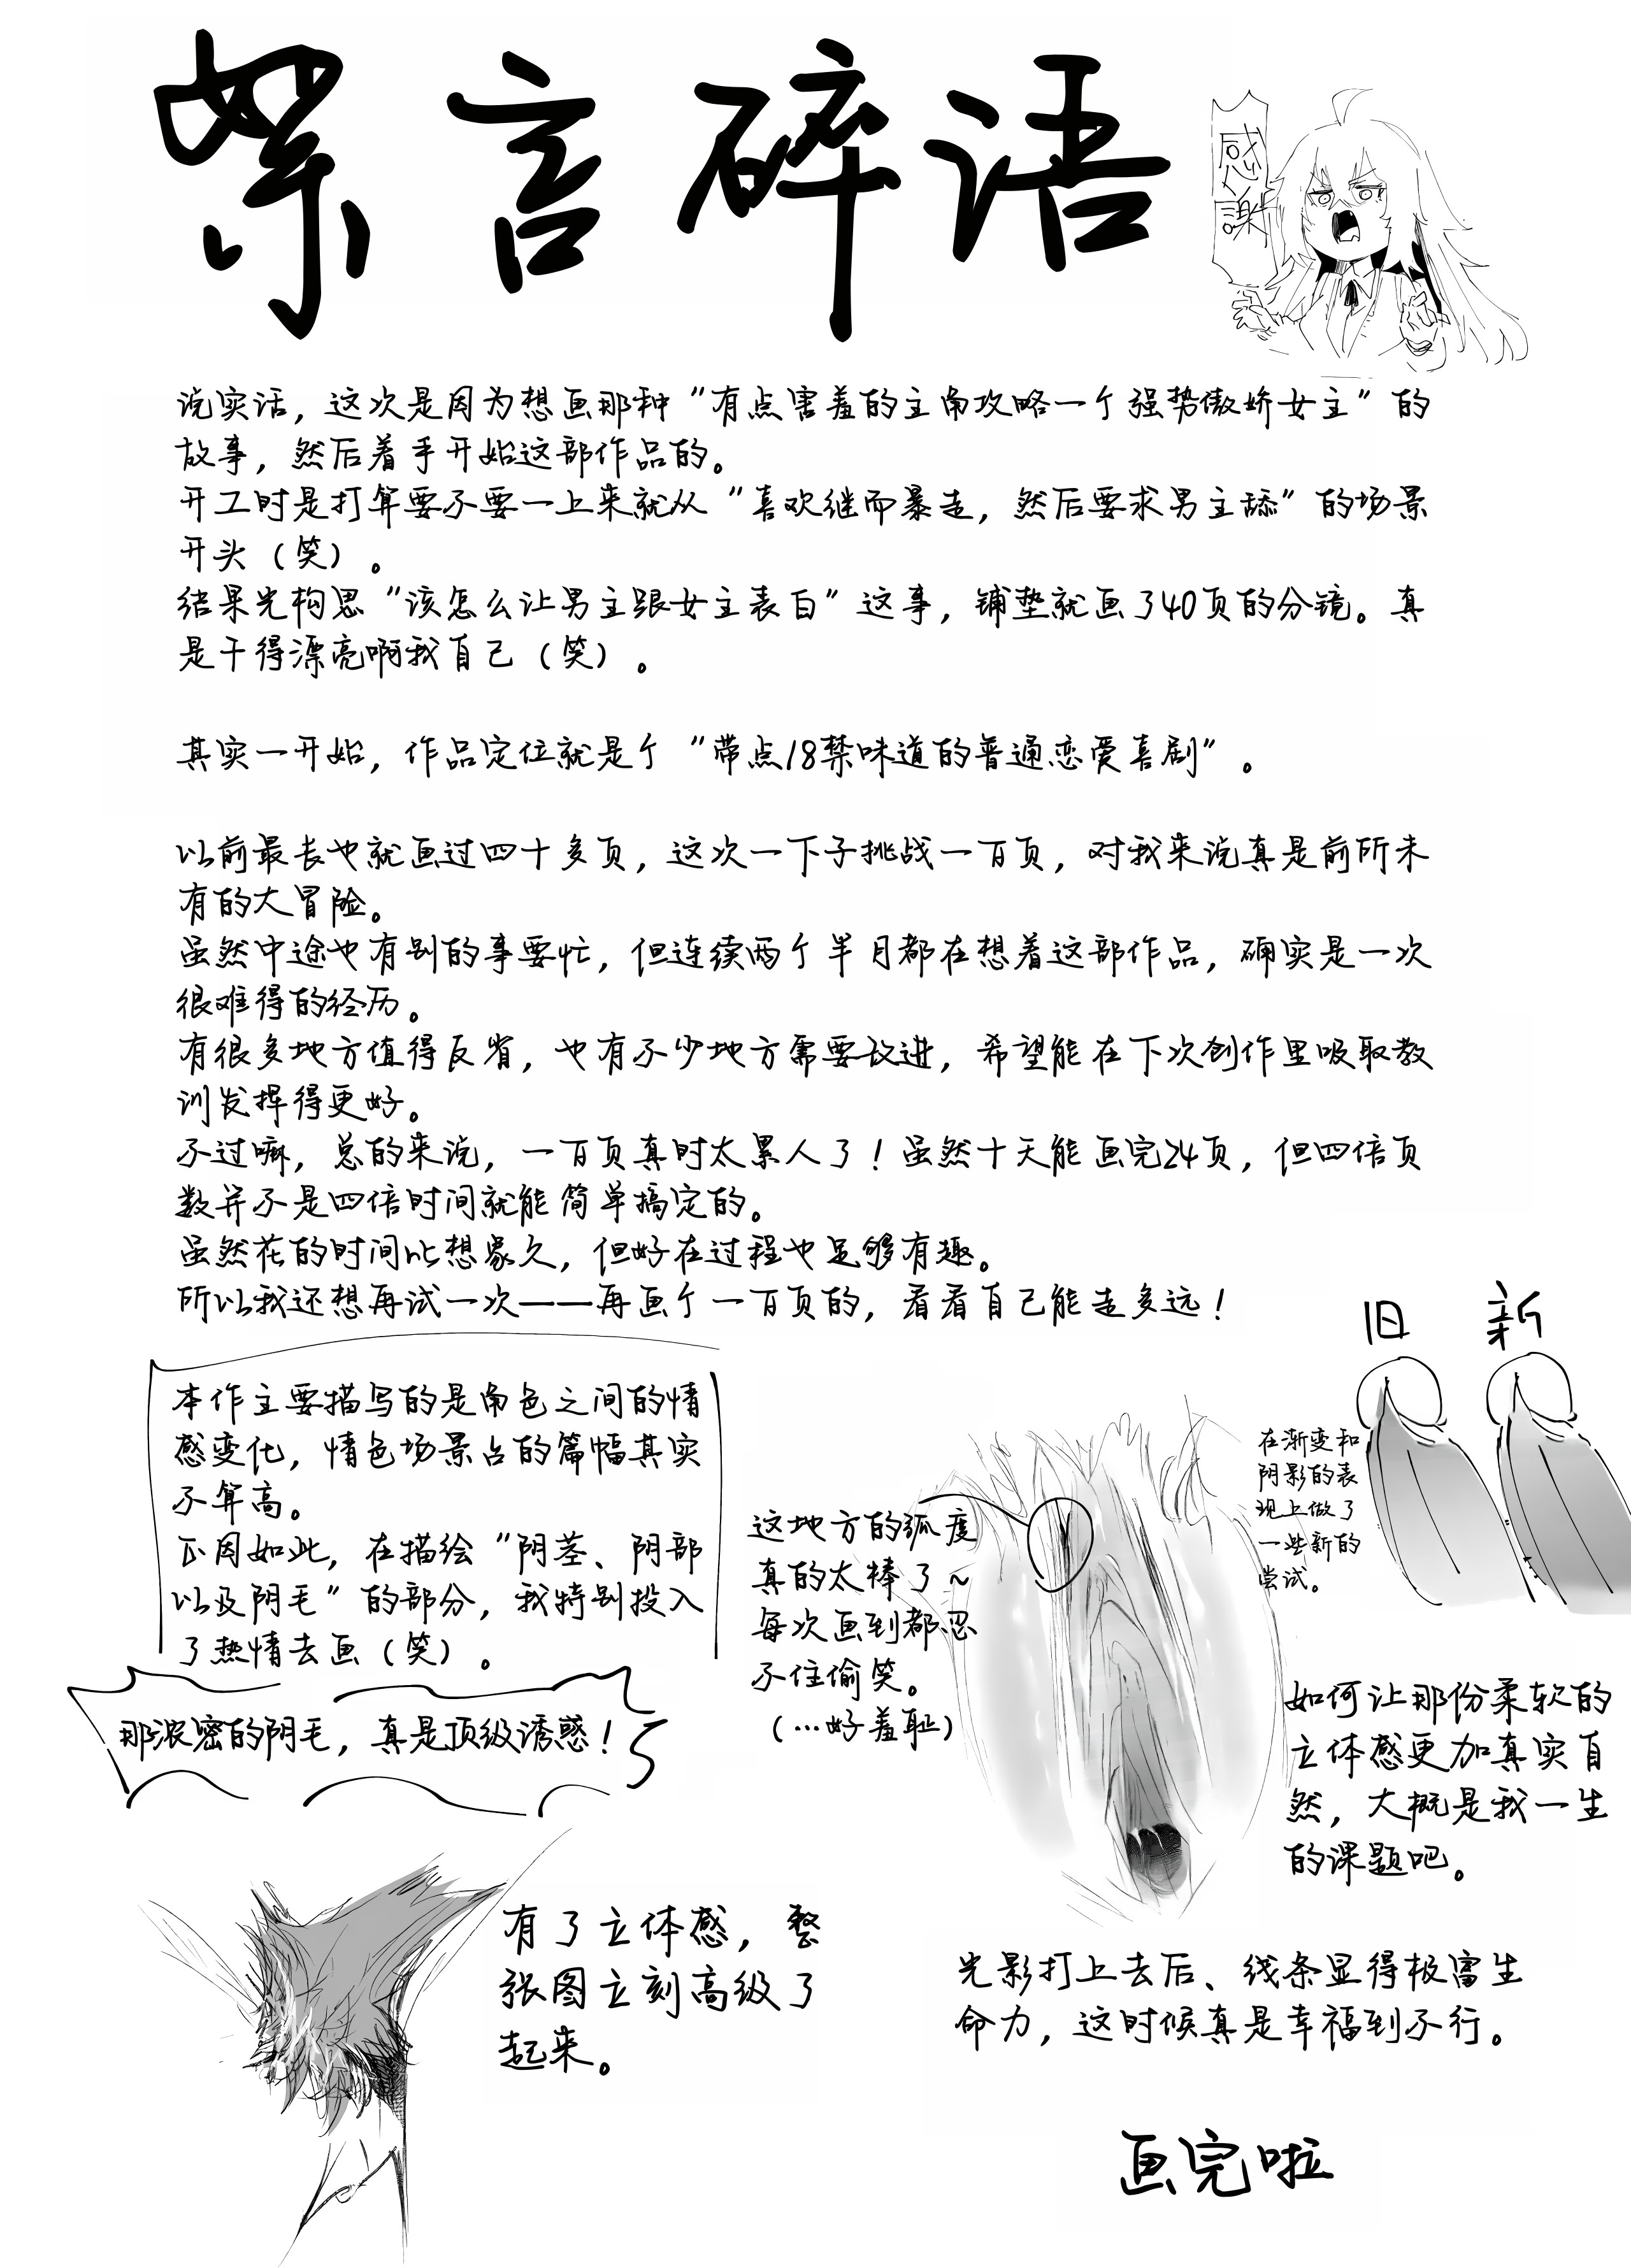 絮言碎语
感謝
说实话，这次是因为想画那种“有点害羞的主角攻略一个强势傲娇女主”的
故事，然后着手开始这部作品的。
开工时是打算要不要一上来就从“喜欢继而暴走，然后要求男主舔”的场景
开头（笑）。
结果光构思“该怎么让男主跟女主表白”这事，铺垫就画了40页的分镜。真
是干得漂亮啊我自己（笑）。
其实一开始，作品定位就是个“带点18禁味道的普通恋爱喜剧”。
以前最长也就画过四十多页，这次一下子挑战一百页，对我来说真是前所未
有的大冒险。
虽然中途也有别的事要忙，但连续两个半月都在想着这部作品，确实是一次
很难得的经历。
有很多地方值得反省，也有不少地方需要改进，希望能在下次创作里吸取教
训发挥得更好。
不过嘛，总的来说，一百页真时太累人了！虽然十天能画完24页，但四倍页
数并不是四倍时间就能简单搞定的。
虽然花的时间比想象久，但好在过程也足够有趣。
所以我还想再试一次——再画个一百页的，看看自己能走多远！
旧 新
在渐变和
阴影的表
现上做了
一些新的
尝试。
本作主要描写的是角色之间的情
感变化，情色场景占的篇幅其实
不算高。
正因如此，在描绘“阴茎、阴部
以及阴毛”的部分，我特别投入
了热情去画（笑）。
那浓密的阴毛，真是顶级诱惑！
这地方的弧度
真的太棒了~
每次画到都忍
不住偷笑。
（…好羞耻）
如何让那份柔软的
立体感更加真实自
然，大概是我一生
的课题吧。
有了立体感，整
张图立刻高级了
起来。
光影打上去后、线条显得极富生
命力，这时候真是幸福到不行。
画完啦